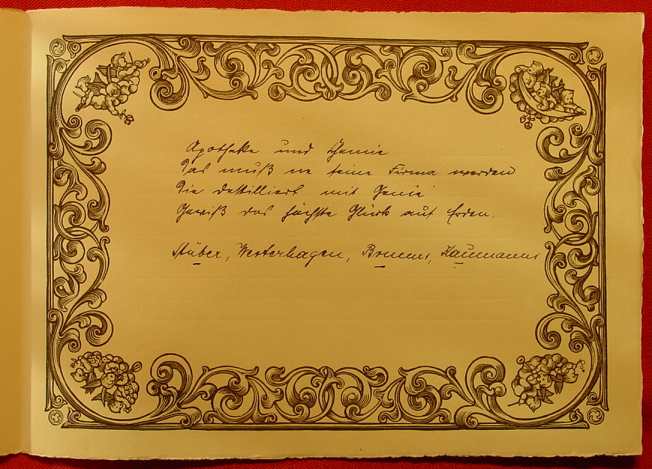 Apotheke und Chemie
Das muß ne feine Firma werden
Die destilliert mit Genie
Gewiß das höchste Glück auf Erden.
Stüber, Westerhagen, Bruns, Naumanns